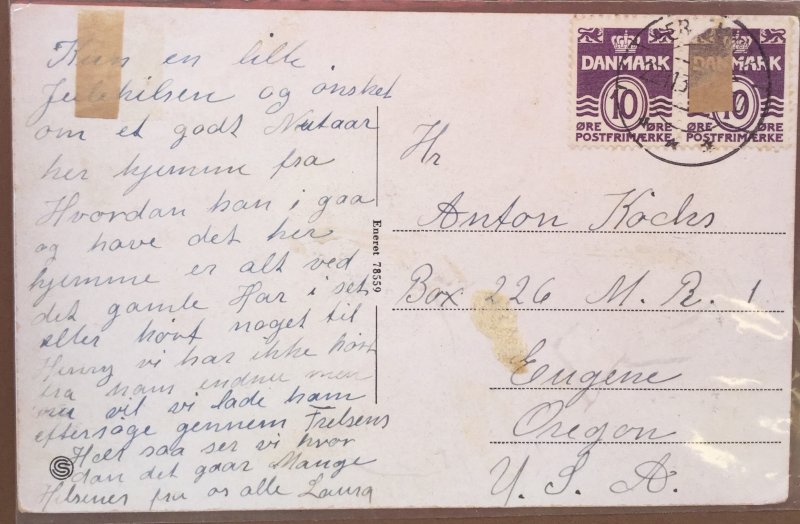 Kun en lille
Julehilsen og ønsket
om et godt Nutaar
her hjemme fra
Hvordan kan i gaa
og have det her
hjemme er alt ved
det gamle Har i set
eller hört noget til
Henry vi har ikke hört
fra ham endnu men
nu vil vi lade ham
eftersöge gennem Frelsens
Hær saa ser vi hvor
dan det gaar Mange
Hilsener fra os alle Laura
Eneret 78559
DANMARK
10
ØRE ØRE
POSTFRIMÆRKE
DANMARK
10
ØRE ØRE
POSTFRIMÆRKE
Hr
Anton Kocks
Box 226 M. R. 1
Eugene
Oregon
U. S. A.